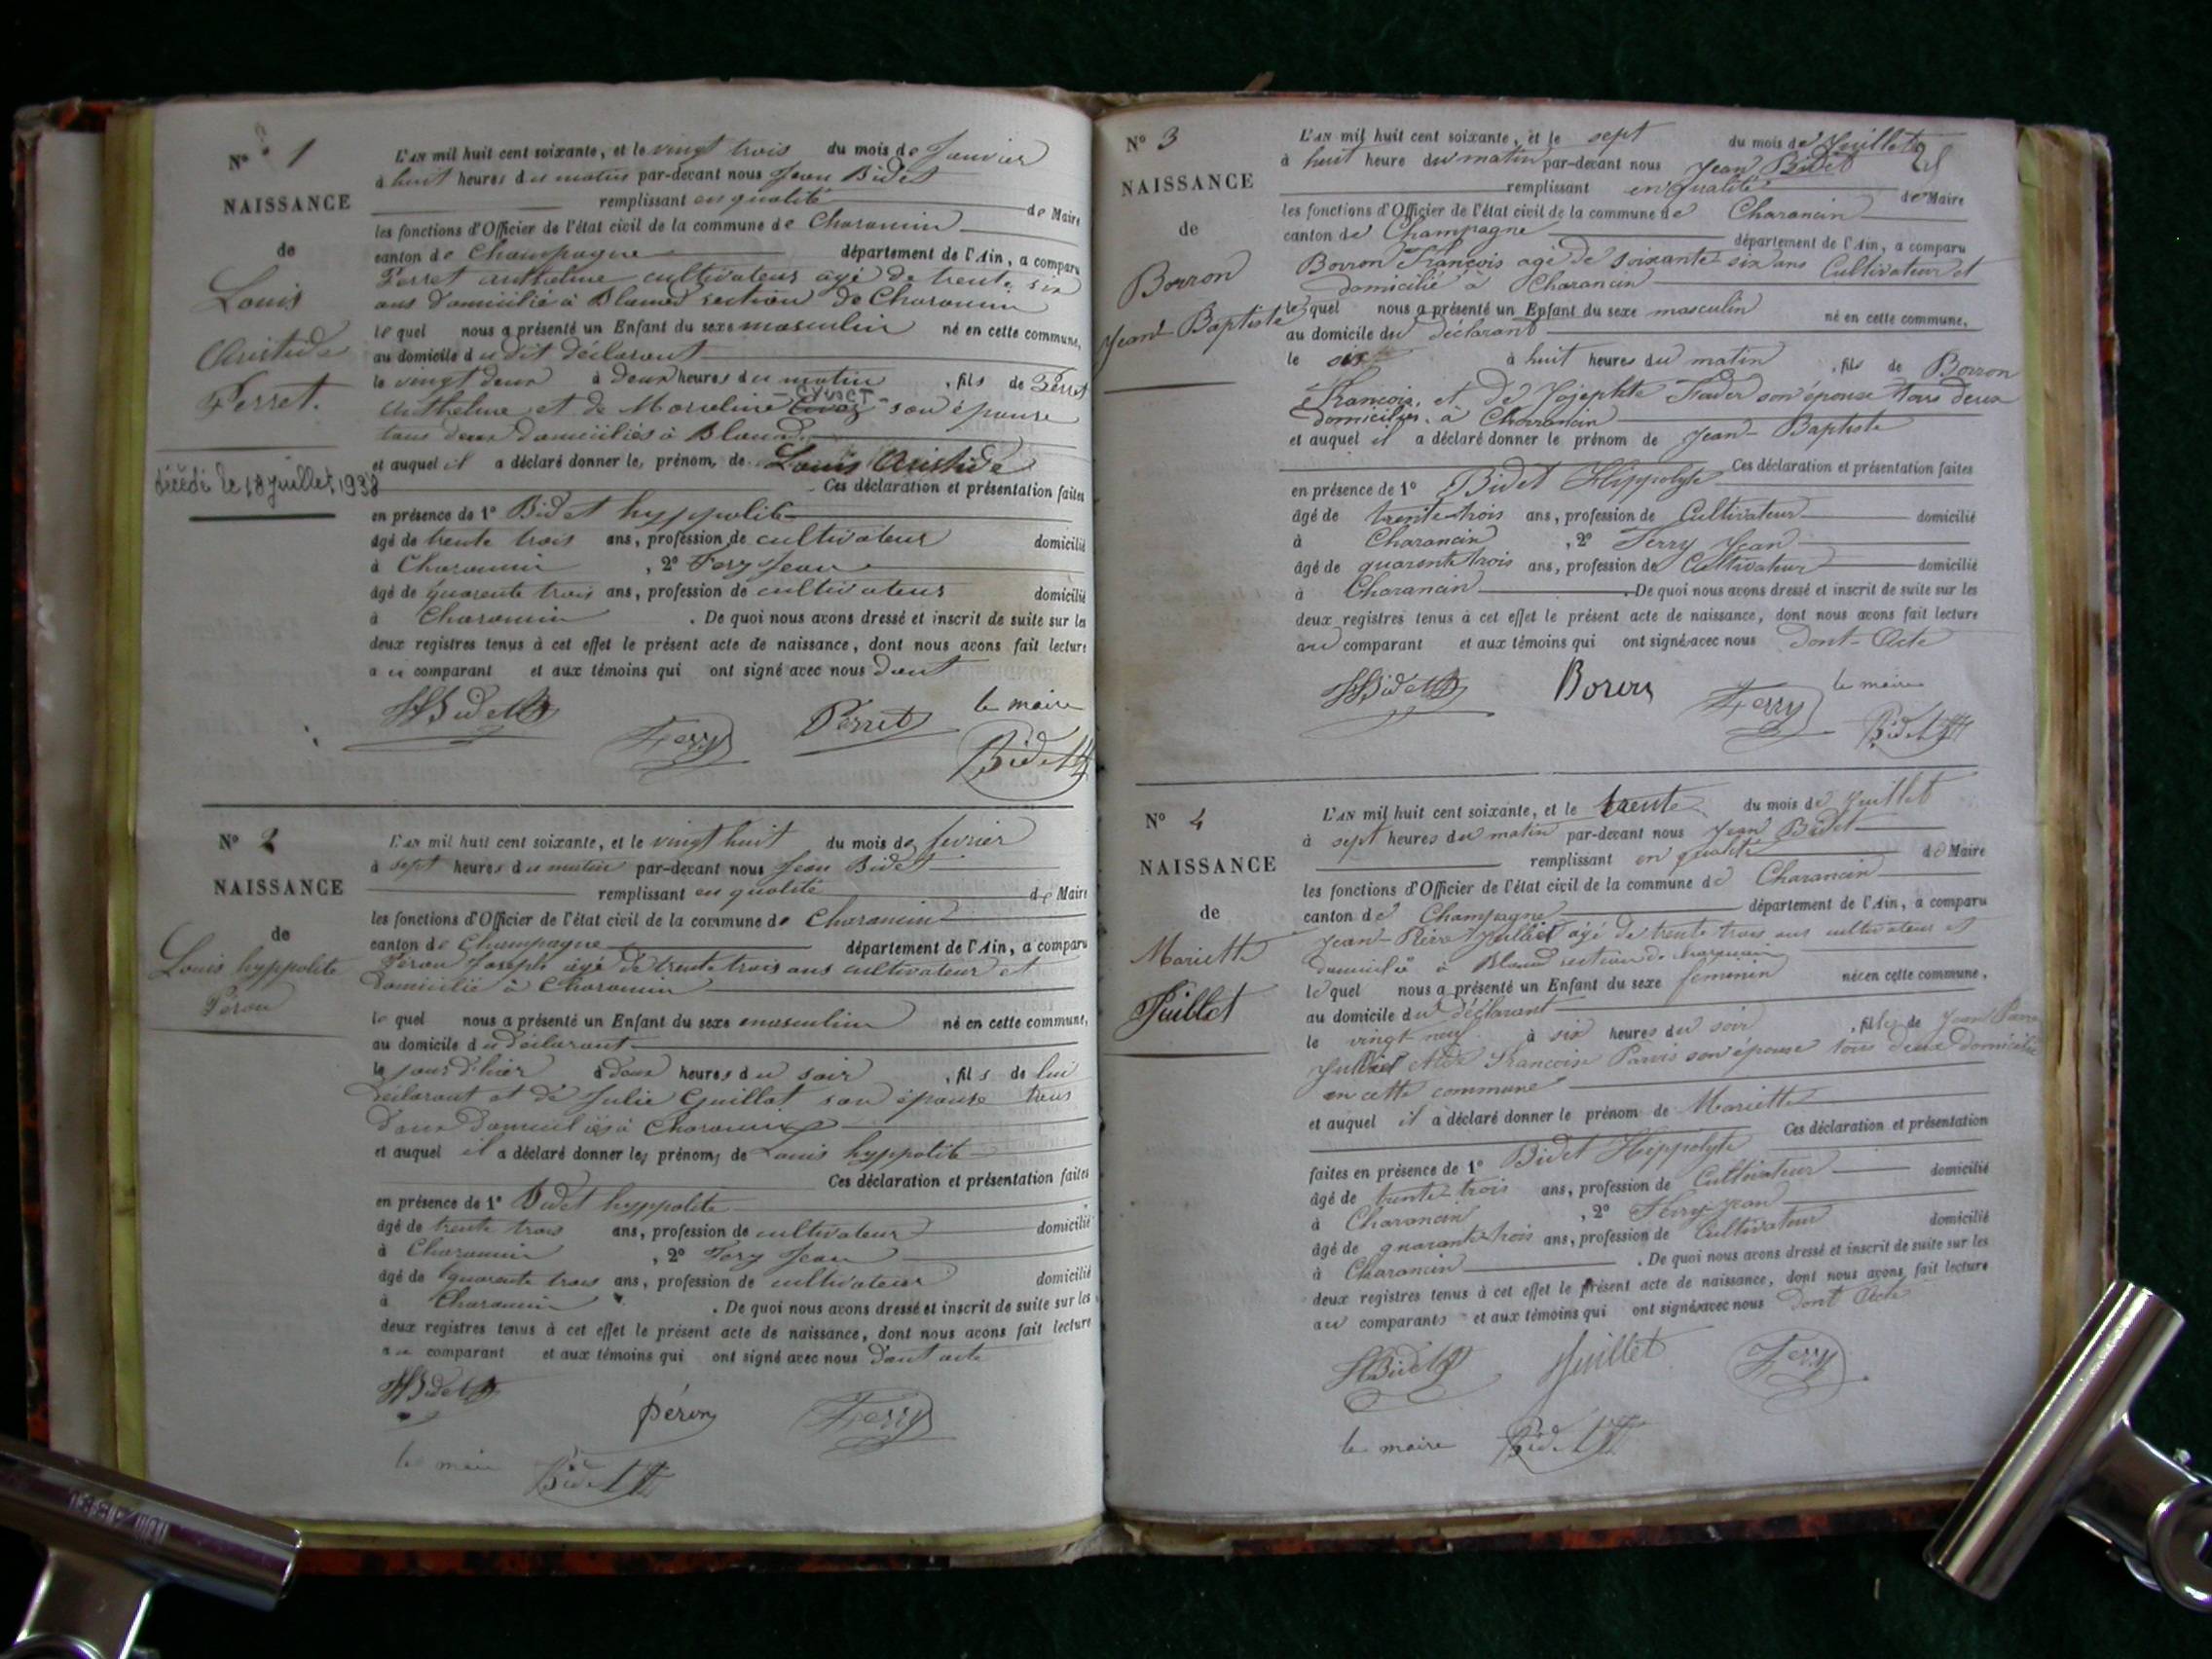 N° 1
NAISSANCE
de
Louis
Aristide
Perret.
décédé le 18 juillet 1938
L'AN mil huit cent soixante, et le vingt trois du mois de Janvier
à huit heures du matin par-devant nous Jean Bidet
remplissant en qualité de Maire
les fonctions d'Officier de l'état civil de la commune de Charancin
canton de Champagne département de l'Ain, a comparu
Perret anthelme cultivateur âgé de trente six
ans domicilié à Blanod section de Charancin
le quel nous a présenté un Enfant du sexe masculin né en cette commune,
au domicile du dit déclarant
le vingt deux à deux heures du matin, fils de Perret
Anthelme et de Marceline son épouse
tous deux domiciliés à Blanod
et auquel il a déclaré donner les prénoms de Louis Aristide
Ces déclaration et présentation faites
en présence de 1° Bidet hyppolite
âgé de trente trois ans, profession de cultivateur domicilié
à Charancin, 2° Fery Jean
âgé de quarente trois ans, profession de cultivateur domicilié
à Charancin. De quoi nous avons dressé et inscrit de suite sur les
deux registres tenus à cet effet le présent acte de naissance, dont nous avons fait lecture
au comparant et aux témoins qui ont signé avec nous dont
HBidet Ferry Perret le maire
Bidet
N° 2
NAISSANCE
de
Louis hyppolite
Péron
L'AN mil huit cent soixante, et le vingt huit du mois de fevrier
à sept heures du matin par-devant nous Jean Bidet
remplissant en qualité de Maire
les fonctions d'Officier de l'état civil de la commune de Charancin
canton de Champagne département de l'Ain, a comparu
Péron Joseph âgé de trente trois ans cultivateur et
domicilié à Charancin
le quel nous a présenté un Enfant du sexe masculin né en cette commune,
au domicile du déclarant
le jour d'hier à deux heures du soir, fils de lui
déclarant et de Julie Guillot son épouse tous
deux domiciliés à Charancin
et auquel il a déclaré donner les prénoms de Louis hyppolite
Ces déclaration et présentation faites
en présence de 1° Bidet hyppolite
âgé de trente trois ans, profession de cultivateur domicilié
à Charancin, 2° Fery Jean
âgé de quarente trois ans, profession de cultivateur domicilié
à Charancin. De quoi nous avons dressé et inscrit de suite sur les
deux registres tenus à cet effet le présent acte de naissance, dont nous avons fait lecture
au comparant et aux témoins qui ont signé avec nous dont acte
HBidet Péron Ferry
le maire Bidet
N° 3
NAISSANCE
de
Borron
Jean Baptiste
L'AN mil huit cent soixante, et le sept du mois de Juillet
à huit heure du matin par-devant nous Jean Bidet
remplissant en qualité de Maire
les fonctions d'Officier de l'état civil de la commune de Charancin
canton de Champagne département de l'Ain, a comparu
Borron François âgé de soixante-six ans Cultivateur et
domicilié à Charancin
le quel nous a présenté un Enfant du sexe masculin né en cette commune,
au domicile du déclarant
le six à huit heures du matin, fils de Borron
François, et de Josephte Frader son épouse tous deux
domiciliés à Charancin
et auquel il a déclaré donner le prénom de Jean-Baptiste
Ces déclaration et présentation faites
en présence de 1° Bidet Hippolyte
âgé de trente-trois ans, profession de Cultivateur domicilié
à Charancin, 2° Ferry Jean
âgé de quarente trois ans, profession de Cultivateur domicilié
à Charancin. De quoi nous avons dressé et inscrit de suite sur les
deux registres tenus à cet effet le présent acte de naissance, dont nous avons fait lecture
au comparant et aux témoins qui ont signé avec nous Dont-Acte
HBidet Boron Ferry le maire
Bidet
N° 4
NAISSANCE
de
Mariette
Juillet
L'AN mil huit cent soixante, et le trente du mois de Juillet
à sept heures du matin par-devant nous Jean Bidet
remplissant en qualité de Maire
les fonctions d'Officier de l'état civil de la commune de Charancin
canton de Champagne département de l'Ain, a comparu
Jean-Pierre Juillet âgé de trente trois ans cultivateur et
domicilié à Blanod section de Charancin
le quel nous a présenté un Enfant du sexe feminin né en cette commune,
au domicile du déclarant
le vingt neuf à six heures du soir, fille de Jean Pierre
Juillet et de Françoise Parvis son épouse tous deux domiciliés
en cette commune
et auquel il a déclaré donner le prénom de Mariette
Ces déclaration et présentation
faites en présence de 1° Bidet Hippolyte
âgé de trente-trois ans, profession de Cultivateur domicilié
à Charancin, 2° Ferry Jean
âgé de quarante-trois ans, profession de Cultivateur domicilié
à Charancin. De quoi nous avons dressé et inscrit de suite sur les
deux registres tenus à cet effet le présent acte de naissance, dont nous avons fait lecture
au comparant et aux témoins qui ont signé avec nous Dont Acte
HBidet Juillet Ferry
le maire Bidet